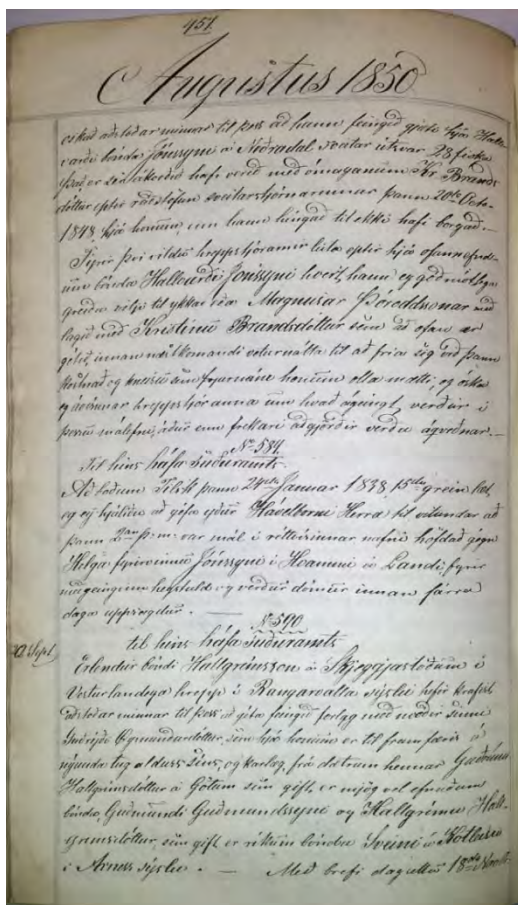 451.
Augustus 1850
óskað aðstoðar minnar til þess að hann feingið gjæti hjá Hall-
varði bónda Jónssyni á Neðradal sveitar útsvar 28 fiska
það, er hafi verið með ómaganum Kr. Brands
dóttur eptir ráðstöfun sveitarstjórnarinnar þann 20ta Octo-
1848 hjá honum enn hann hingað til ekki hafi borgað. —
Fyrir því vildu hreppstjórarnir leita eptir hjá ofannefnd-
um bónda Hallvarði Jónssyni hvert hann eg góðmótlega
greiða vilji til ykkar eða Magnúsar Þóroddsonar með
lagið með Kristínu Brandsdóttur sem að ofan er
gétið, innan næstkomandi veturnátta til að fría sig við þann
kostnað og sem fyrirmuna honum olla mætti, og óska
hreppstjóranna um hvað ágeingt verður í
þessu málefni, áður enn frekari aðgjörðir verða ákveðnar. —
No 589.
Til hins háfa Suðuramts.
Að boðum Tilsk. þann 24da Januar 1838 15da grein
eg ej hjáliða að géfa yður Hávelborni Herra til vitundar að
þann var mál í réttvísinnar nafni höfdað gégn
Helga fyrirvinnu Jónssyni í Hvammi á Landi, fyrir
og verður dómur innan fárra
daga uppsagdur. —
No 590
til hins háfa Suðuramts
2 Sept. Erlendur bóndi Hallgrímsson á Skjeggjastöðum í
Vesturlandeya hrepp í Rangárvalla sýslu hefir krafist
aðstoðar minnar til þess að géta feingið forlag með móður sinni
Guðríði Ögmundardóttur, sem hjá honum er til framfæris á
tug aldurs síns, og karlæg, frá dætrum hennar Guðrúnu
Hallgrímsdóttur á Götum sem gift er mjög vel efnuðum
bónda, Guðmundi Guðmundssyni og Hallgrímu Hall-
grímsdóttur sem gift er ríkum bónda Sveini á
í Arness sýslu. — Með brefi dagsettu 18da